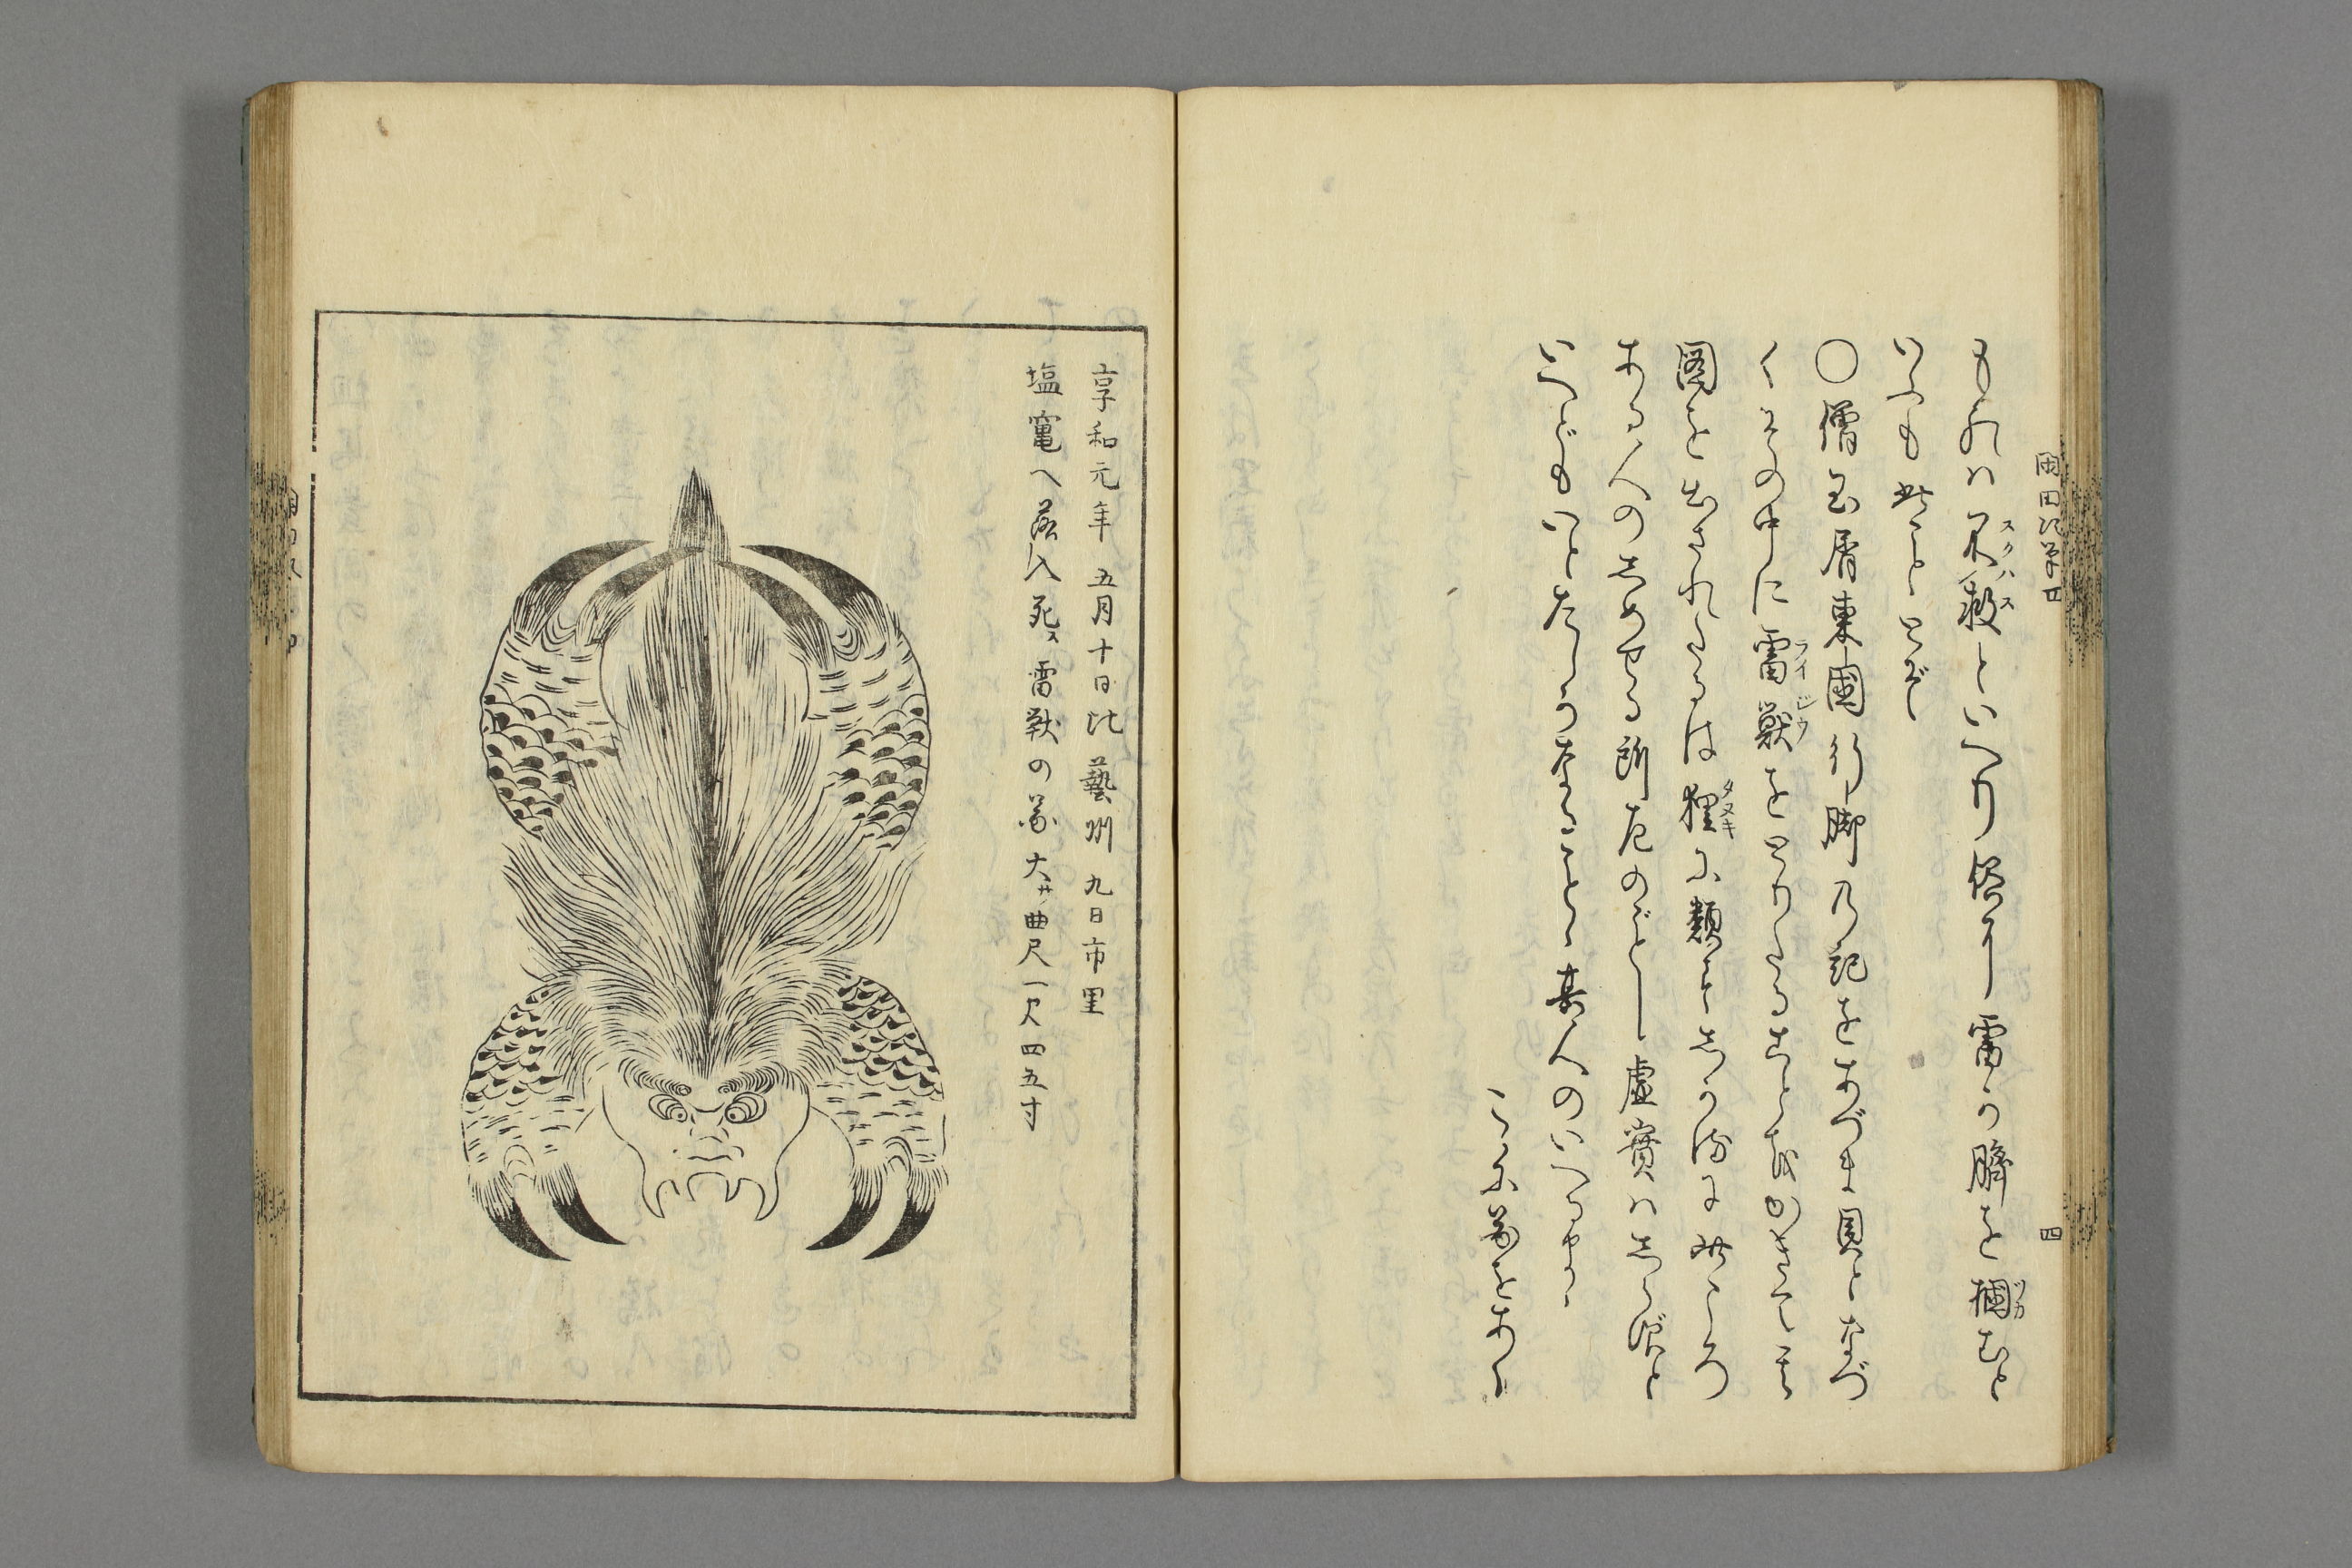 閑田次筆 四
ものハ不救といへり俗に雷の臍を摑むと
いふも此こととぞ
〇僧玉屑東國行脚乃記をあづま貝となづ
くその中に雷獣をとりたることを書て其
圖を出されたるは狸に類としかるに此ころ
ある人のしめせる所左のごとし虚實ハしらずと
いへどもいと
某人のいへるやう
こゝに
四
享和元年 五月十日比 藝州 九日市里
塩竃へ落入死ス雷獣の
大サ曲尺一尺四五寸